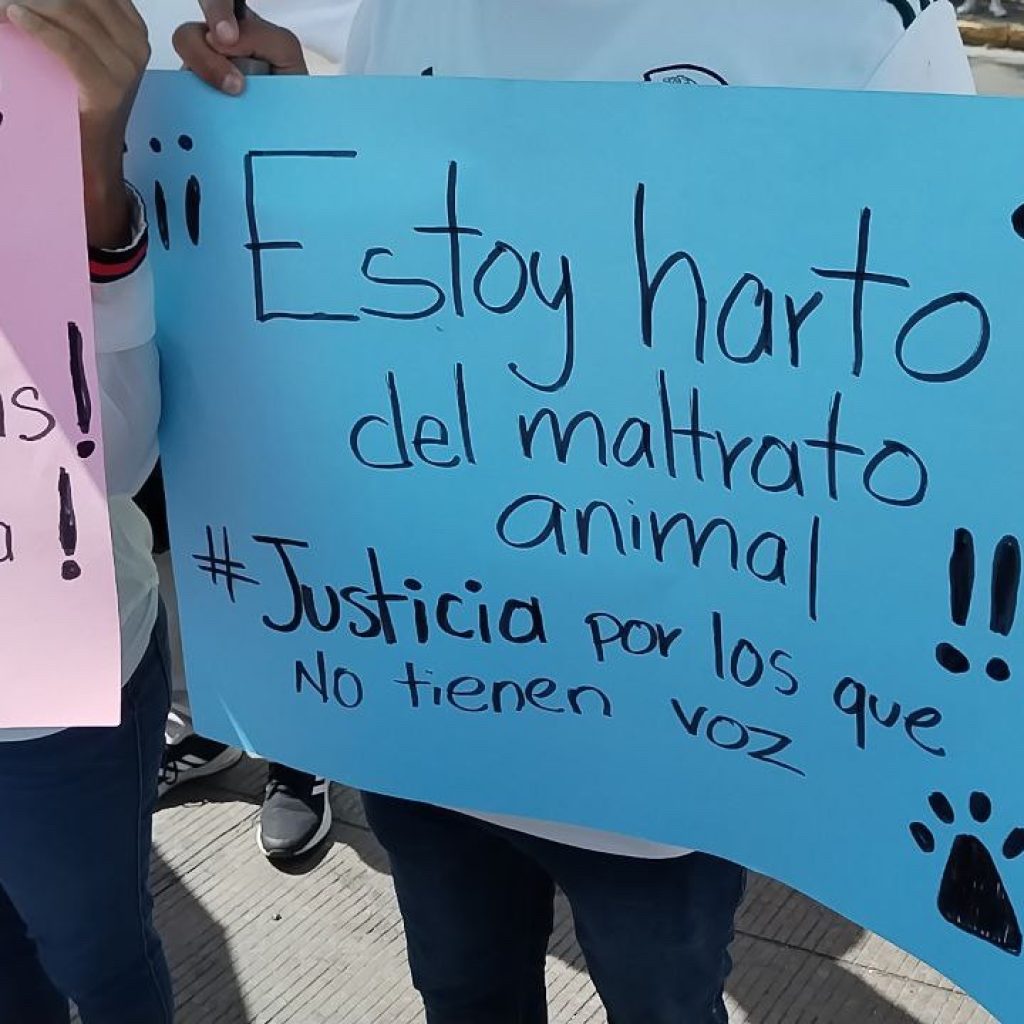 ¡¡Estoy harto
del maltrato
animal!!
#Justicia por los que
No tienen voz